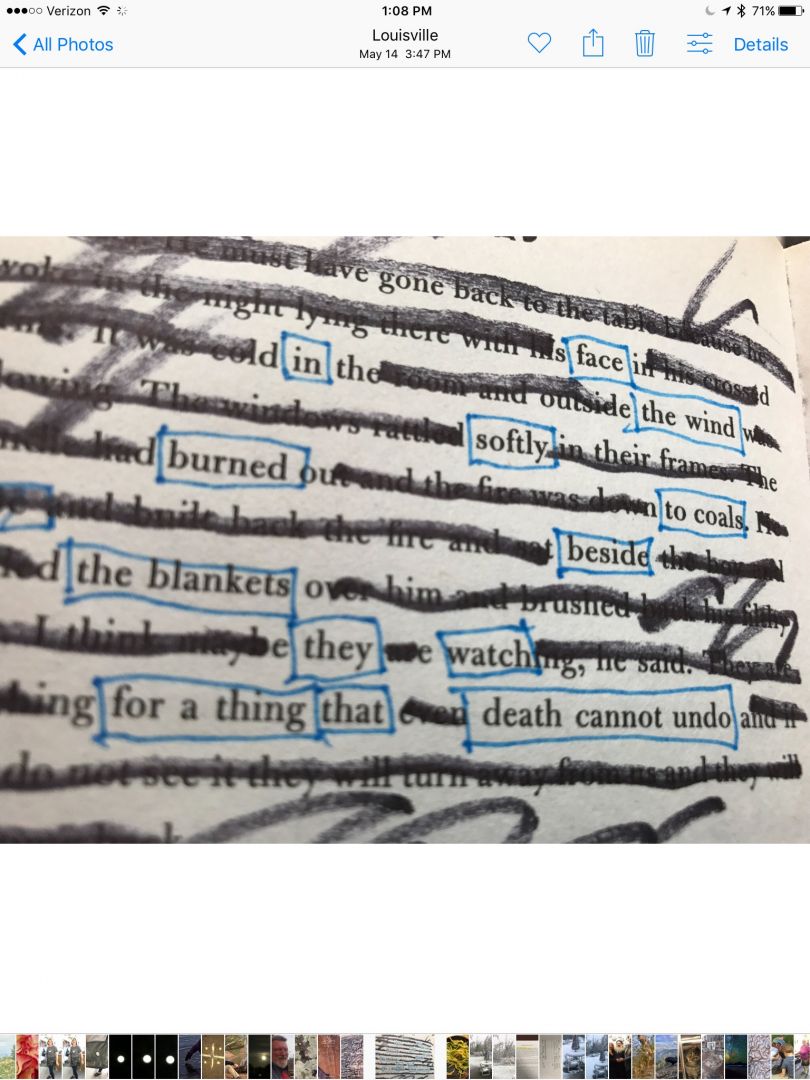 Verizon 1:08 PM 71%
All Photos Louisville Details
May 14 3:47 PM
must have gone back to the table because he
woke in the night lying there with his face in his crossed
It was cold in the room and outside the wind was
lowing. The windows rattled softly in their frames. The
ndle had burned out and the fire was down to coals. He
and built back the fire and sat beside the boy and
ed the blankets over him and brushed back his filthy
I think maybe they are watching, he said. They are
hing for a thing that even death cannot undo and if
do not see it they will turn away from us and they will